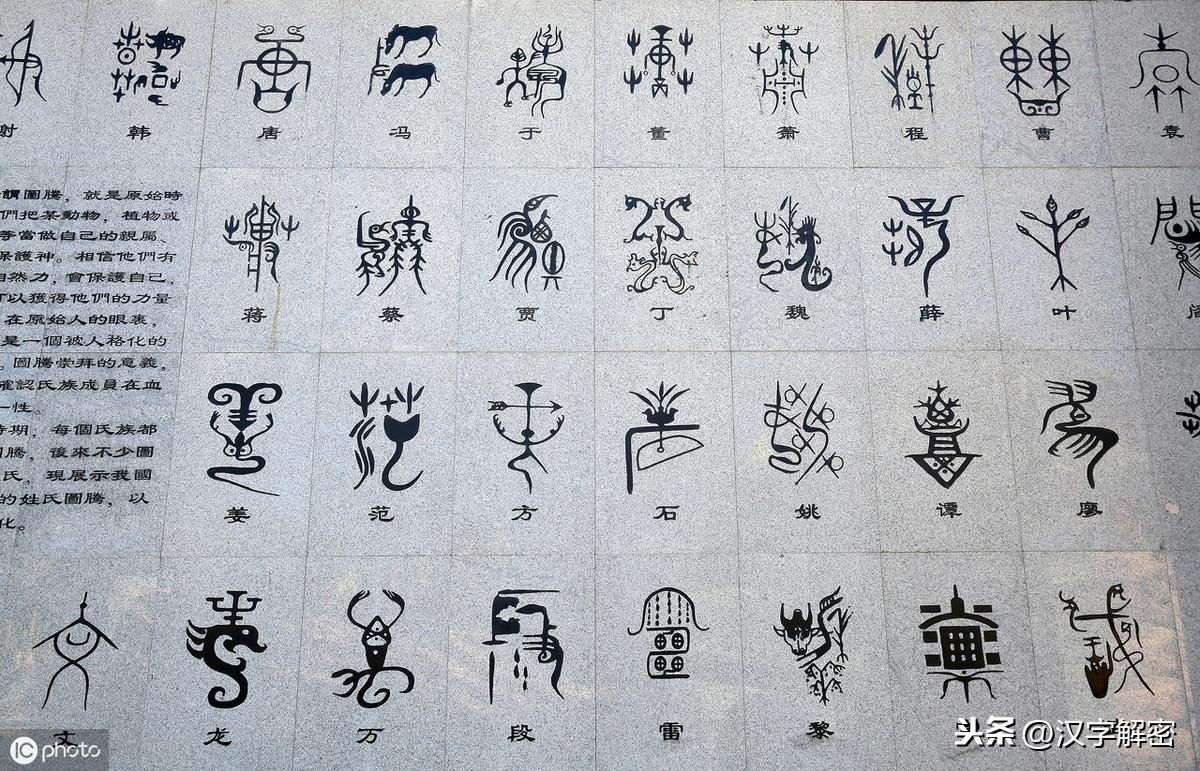 射 韩 唐 冯 于 董 萧 程 曹 袁
謂圖騰，就是原始時
們把某動物，植物或
等當做自己的親屬、
保護神。相信他們有
自然力，會保護自己，
可以獲得他們的力量
在原始人的眼裏，
是一個被人格化的
圖騰崇拜的意義，
確認氏族成員在血
一性。
時期，每個氏族都
圖騰，後來不少圖
氏。現展示我國
的姓氏圖騰，以
化。
蒋 蔡 贾 丁 魏 薛 叶
姜 范 方 石 姚 谭 廖
文 龙 万 段 雷 黎
IC photo
头条 @汉字解密